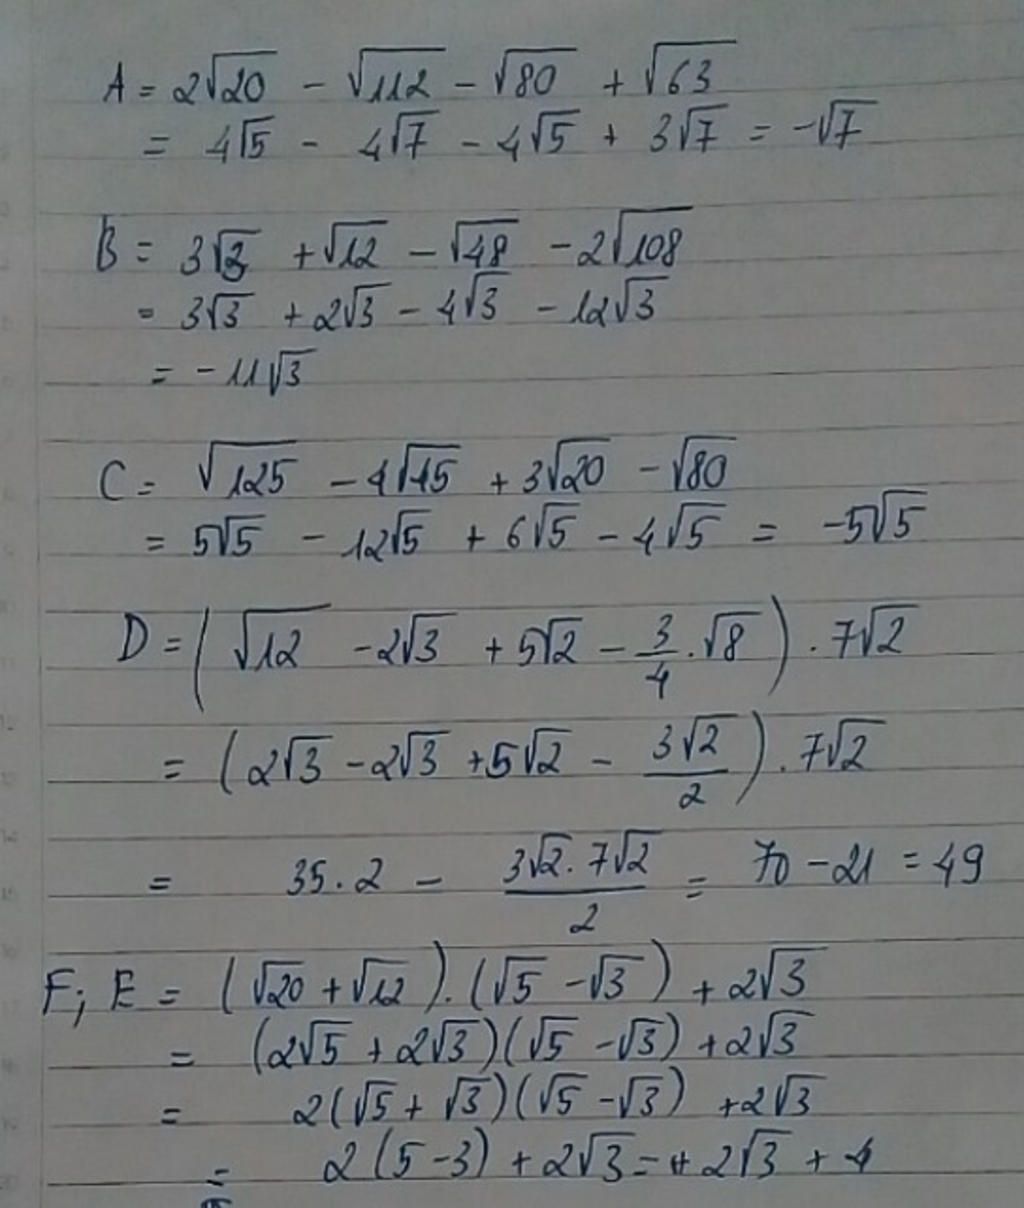 A = 2√20 - √112 - √80 + √63
= 4√5 - 4√7 - 4√5 + 3√7 = -√7
B = 3√3 + √12 - √48 - 2√108
= 3√3 + 2√3 - 4√3 - 12√3
= -11√3
C = √125 - 4√45 + 3√20 - √80
= 5√5 - 12√5 + 6√5 - 4√5 = -5√5
D = (√12 - 2√3 + 5√2 - 3/4 . √8) . 7√2
= (2√3 - 2√3 + 5√2 - 3√2/2) . 7√2
= 35.2 - 3√2.7√2/2 = 70 - 21 = 49
F; E = (√20 + √12).(√5 - √3) + 2√3
= (2√5 + 2√3)(√5 - √3) + 2√3
= 2(√5 + √3)(√5 - √3) + 2√3
= 2(5-3) + 2√3 = + 2√3 + 4